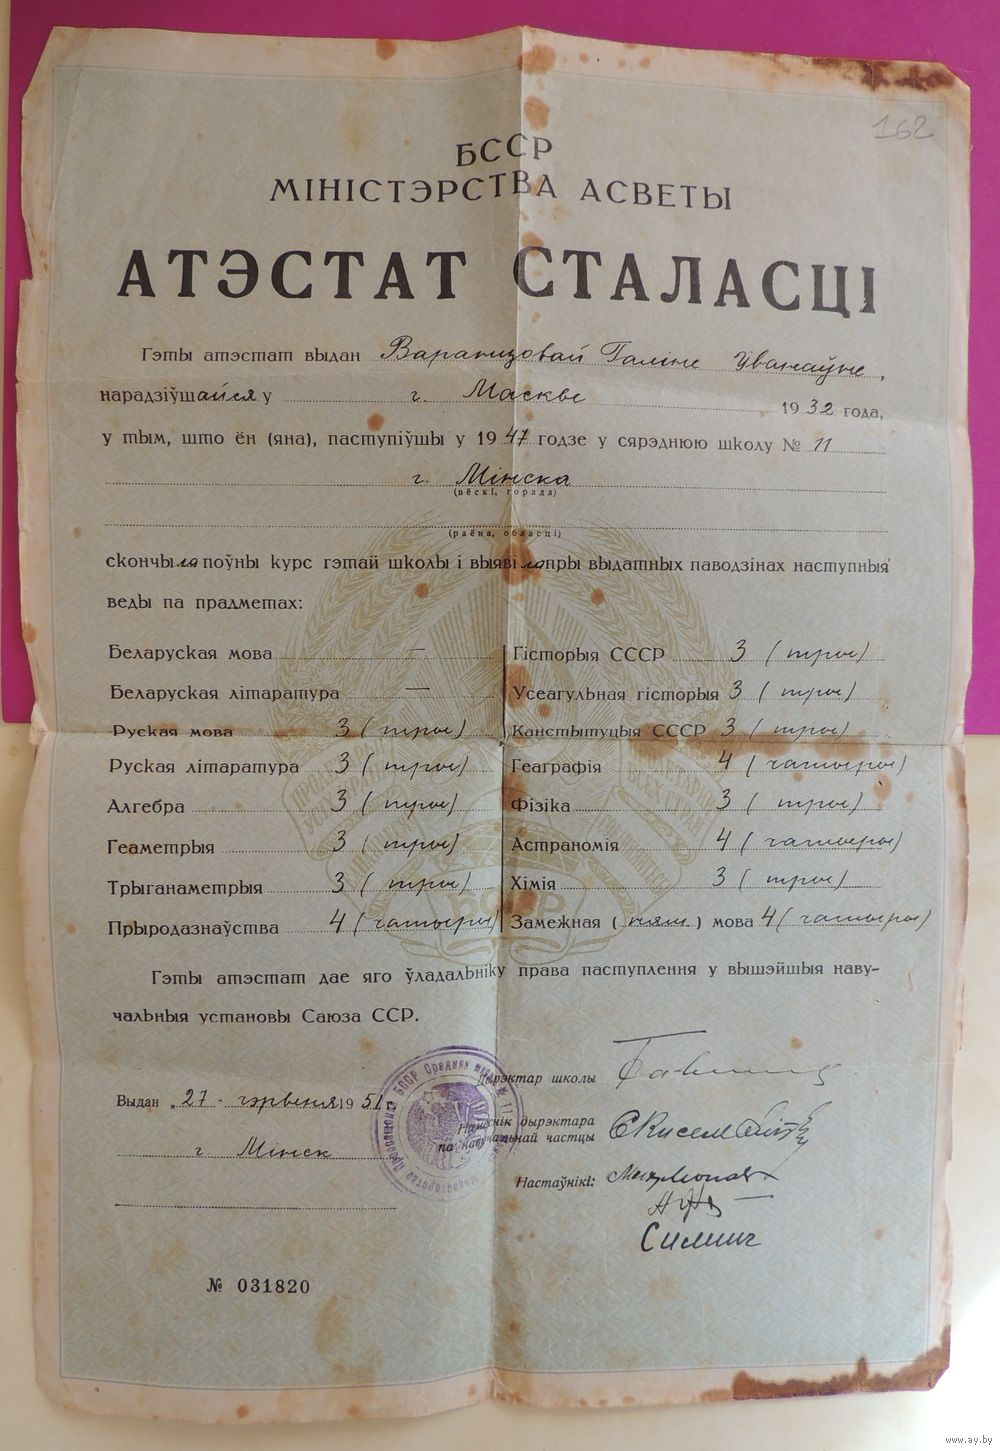 162
БССР
МІНІСТЭРСТВА АСВЕТЫ
АТЭСТАТ СТАЛАСЦІ
Гэты атэстат выдан Варанцовай Галіне Іванаўне,
нарадзіўшайся у г. Маскве 1932 года,
у тым, што ён (яна), паступіўшы у 1947 годзе у сярэднюю школу № 11
г. Мінска
(вёскі, горада)
(раёна, обласці)
скончыла поўны курс гэтай школы і выявіла пры выдатных паводзінах наступныя
веды па прадметах:
Беларуская мова —
Беларуская літаратура —
Руская мова 3 (тры)
Руская літаратура 3 (тры)
Алгебра 3 (тры)
Геаметрыя 3 (тры)
Трыганаметрыя 3 (тры)
Прыродазнаўства 4 (чатыры)
Гісторыя СССР 3 (тры)
Усеагульная гісторыя 3 (тры)
Канстытуцыя СССР 3 (тры)
Геаграфія 4 (чатыры)
Фізіка 3 (тры)
Астраномія 4 (чатыры)
Хімія 3 (тры)
Замежная (ням.) мова 4 (чатыры)
Гэты атэстат дае яго ўладальніку права паступлення у вышэйшыя наву-
чальныя установы Саюза ССР.
Выдан „27 - чэрвеня 1951
г. Мінск
Дырэктар школы
Намеснік дырэктара
па навучальнай частцы
Настаўнікі:
№ 031820
БССР
www.ay.by